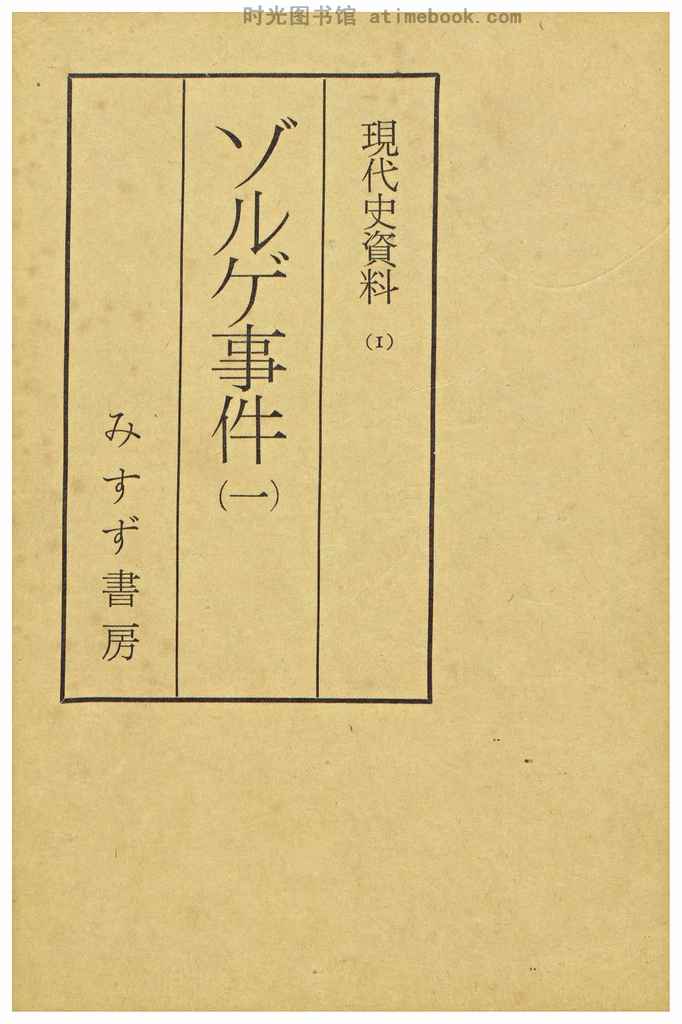 时光图书馆 atimebook.com
現代史資料(1)
ゾルゲ事件(一)
みすず書房